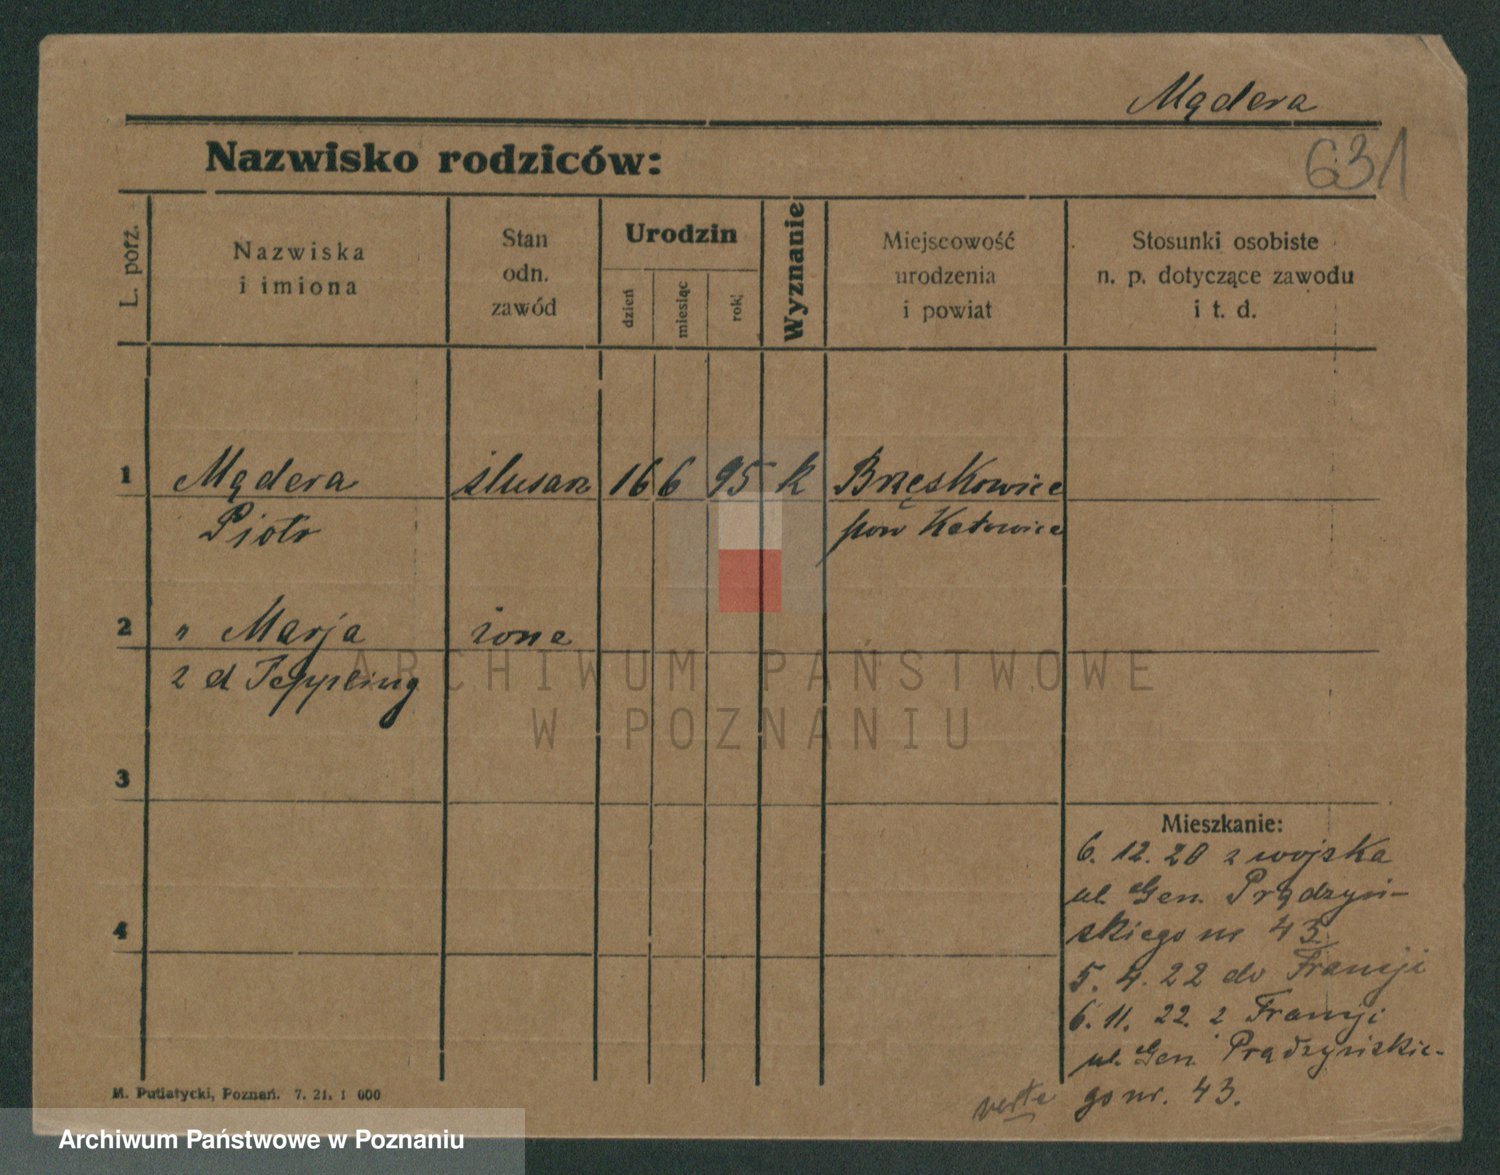 Mądera
Nazwisko rodziców:
631
L. porz.
Nazwiska
i imiona
Stan
odn.
zawód
Urodzin
dzień
miesiąc
rok
Wyznanie
Miejscowość
urodzenia
i powiat
Stosunki osobiste
n. p. dotyczące zawodu
i t. d.
1 Mądera ślusarz 16 6 95 k Brzęskowice
Piotr pow Katowice
2 " Marja żona
z d Teppling
ARCHIWUM PAŃSTWOWE
W POZNANIU
3
4
Mieszkanie:
6. 12. 20 z wojska
ul. Gen. Prądzyń-
skiego nr 43
5. 4. 22 do Francji
6. 11. 22. z Francji
ul. Gen. Prądzyńskie-
go nr. 43.
verte
M. Putiatycki, Poznań. 7. 21. 1 000
Archiwum Państwowe w Poznaniu